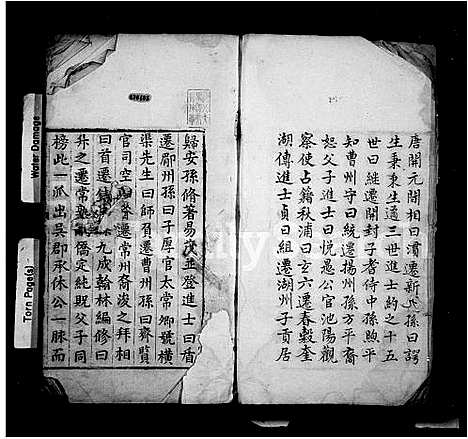 唐開元間相曰濆遷新㳂孫曰諤
生秉秉生適三世進士約之十五
世曰繼遷開封子耆侍中孫煦平
知曹州守曰統遷揚州孫方平裔
恕父子進士曰悅愈公官池陽觀
察使占籍秋浦曰玄六遷春穀奎
湖傳進士貞曰組遷湖州子貢居
歸安孫脩者易茂並登進士曰盾
遷郿州孫曰子厚官太常卿號橫
渠先生曰師顏遷曹州孫曰齊賢
官司空 齊遷常州裔浚之拜相
曰首遷 九成翰林編修曰
升之遷常 僑定純貺父子同
榜此一派出吳郡承休公一脉而
Water Damage
Torn Page(s)